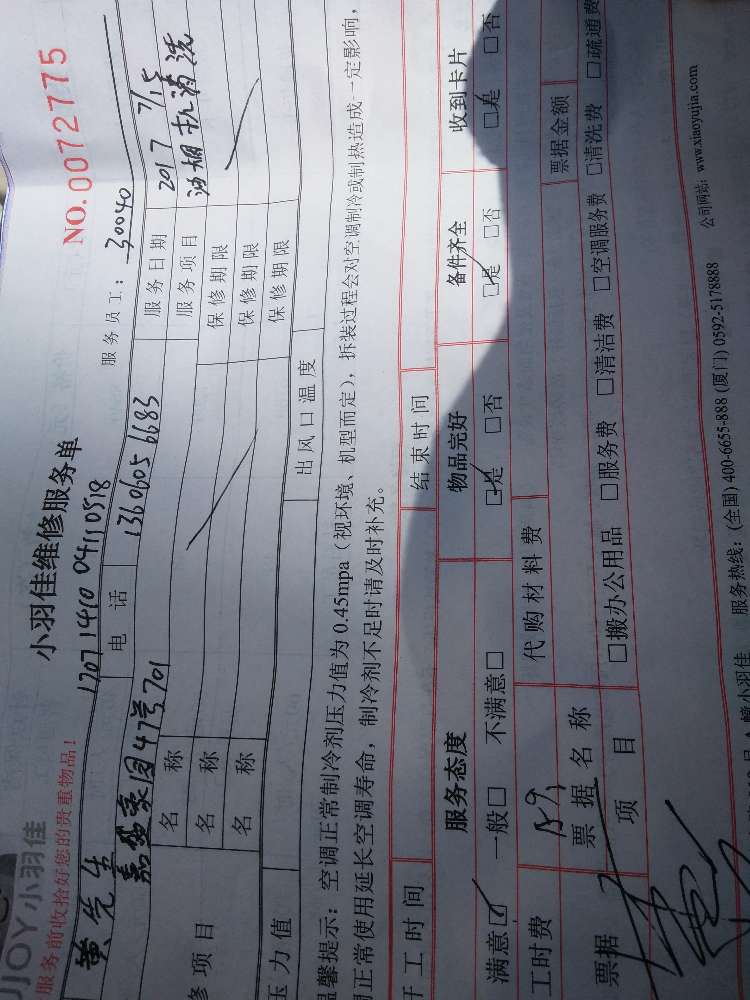 UJOY小羽佳
小羽佳维修服务单
NO.0072775
服务前收拾好您的贵重物品！
17071410 04110518
服务员工：30040
黄先生 电话 13606056683 服务日期 2017 7/15
47号701 服务项目 油烟机清洗
名称 保修期限
修项目 名称 保修期限
名称 保修期限
压力值 出风口温度
温馨提示：空调正常制冷剂压力值为0.45mpa（视环境、机型而定），拆装过程会对空调制冷或制热造成一定影响，
正常使用延长空调寿命，制冷剂不足时请及时补充。
开工时间 结束时间
服务态度 物品完好 备件齐全 收到卡片
满意☑ 一般□ 不满意□ □是 □否 □是 □否 □是 □否
工时费 代购材料费 票据金额
票据名称
票据 项目 □搬办公用品 □服务费 □清洁费 □空调服务费 □清洗费 □疏通费
小羽佳 服务热线：(全国) 400-6655-888 (厦门) 0592-5178888 公司网站：www.xiaoyujia.com